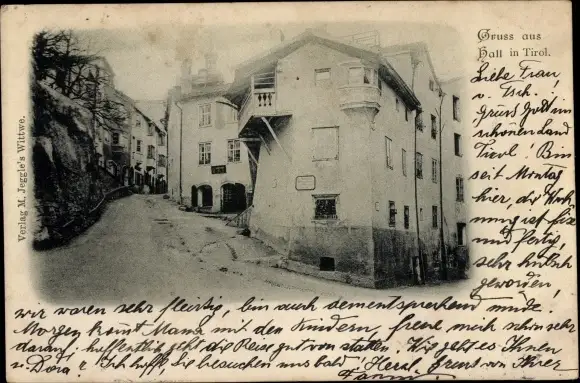 Gruss aus
Hall in Tirol.
Verlag M. Jeggle's Wittwe.
Liebe Frau
v. Tsch.!
Grüss Gott im
schönen Land
Tirol! Bin
seit Montag
hier, die Woh
nung ist fix
und fertig,
sehr hübsch
geworden,
wir waren sehr fleissig, bin auch dementsprechend müde.
Morgen kommt Mama mit den Kindern, freue mich schon sehr
darauf, hoffentlich geht die Reise gut von statten. Wie geht es Ihnen
u. Dora? Ich hoffe, Sie besuchen uns bald! Herzl. Gruss von Ihrer